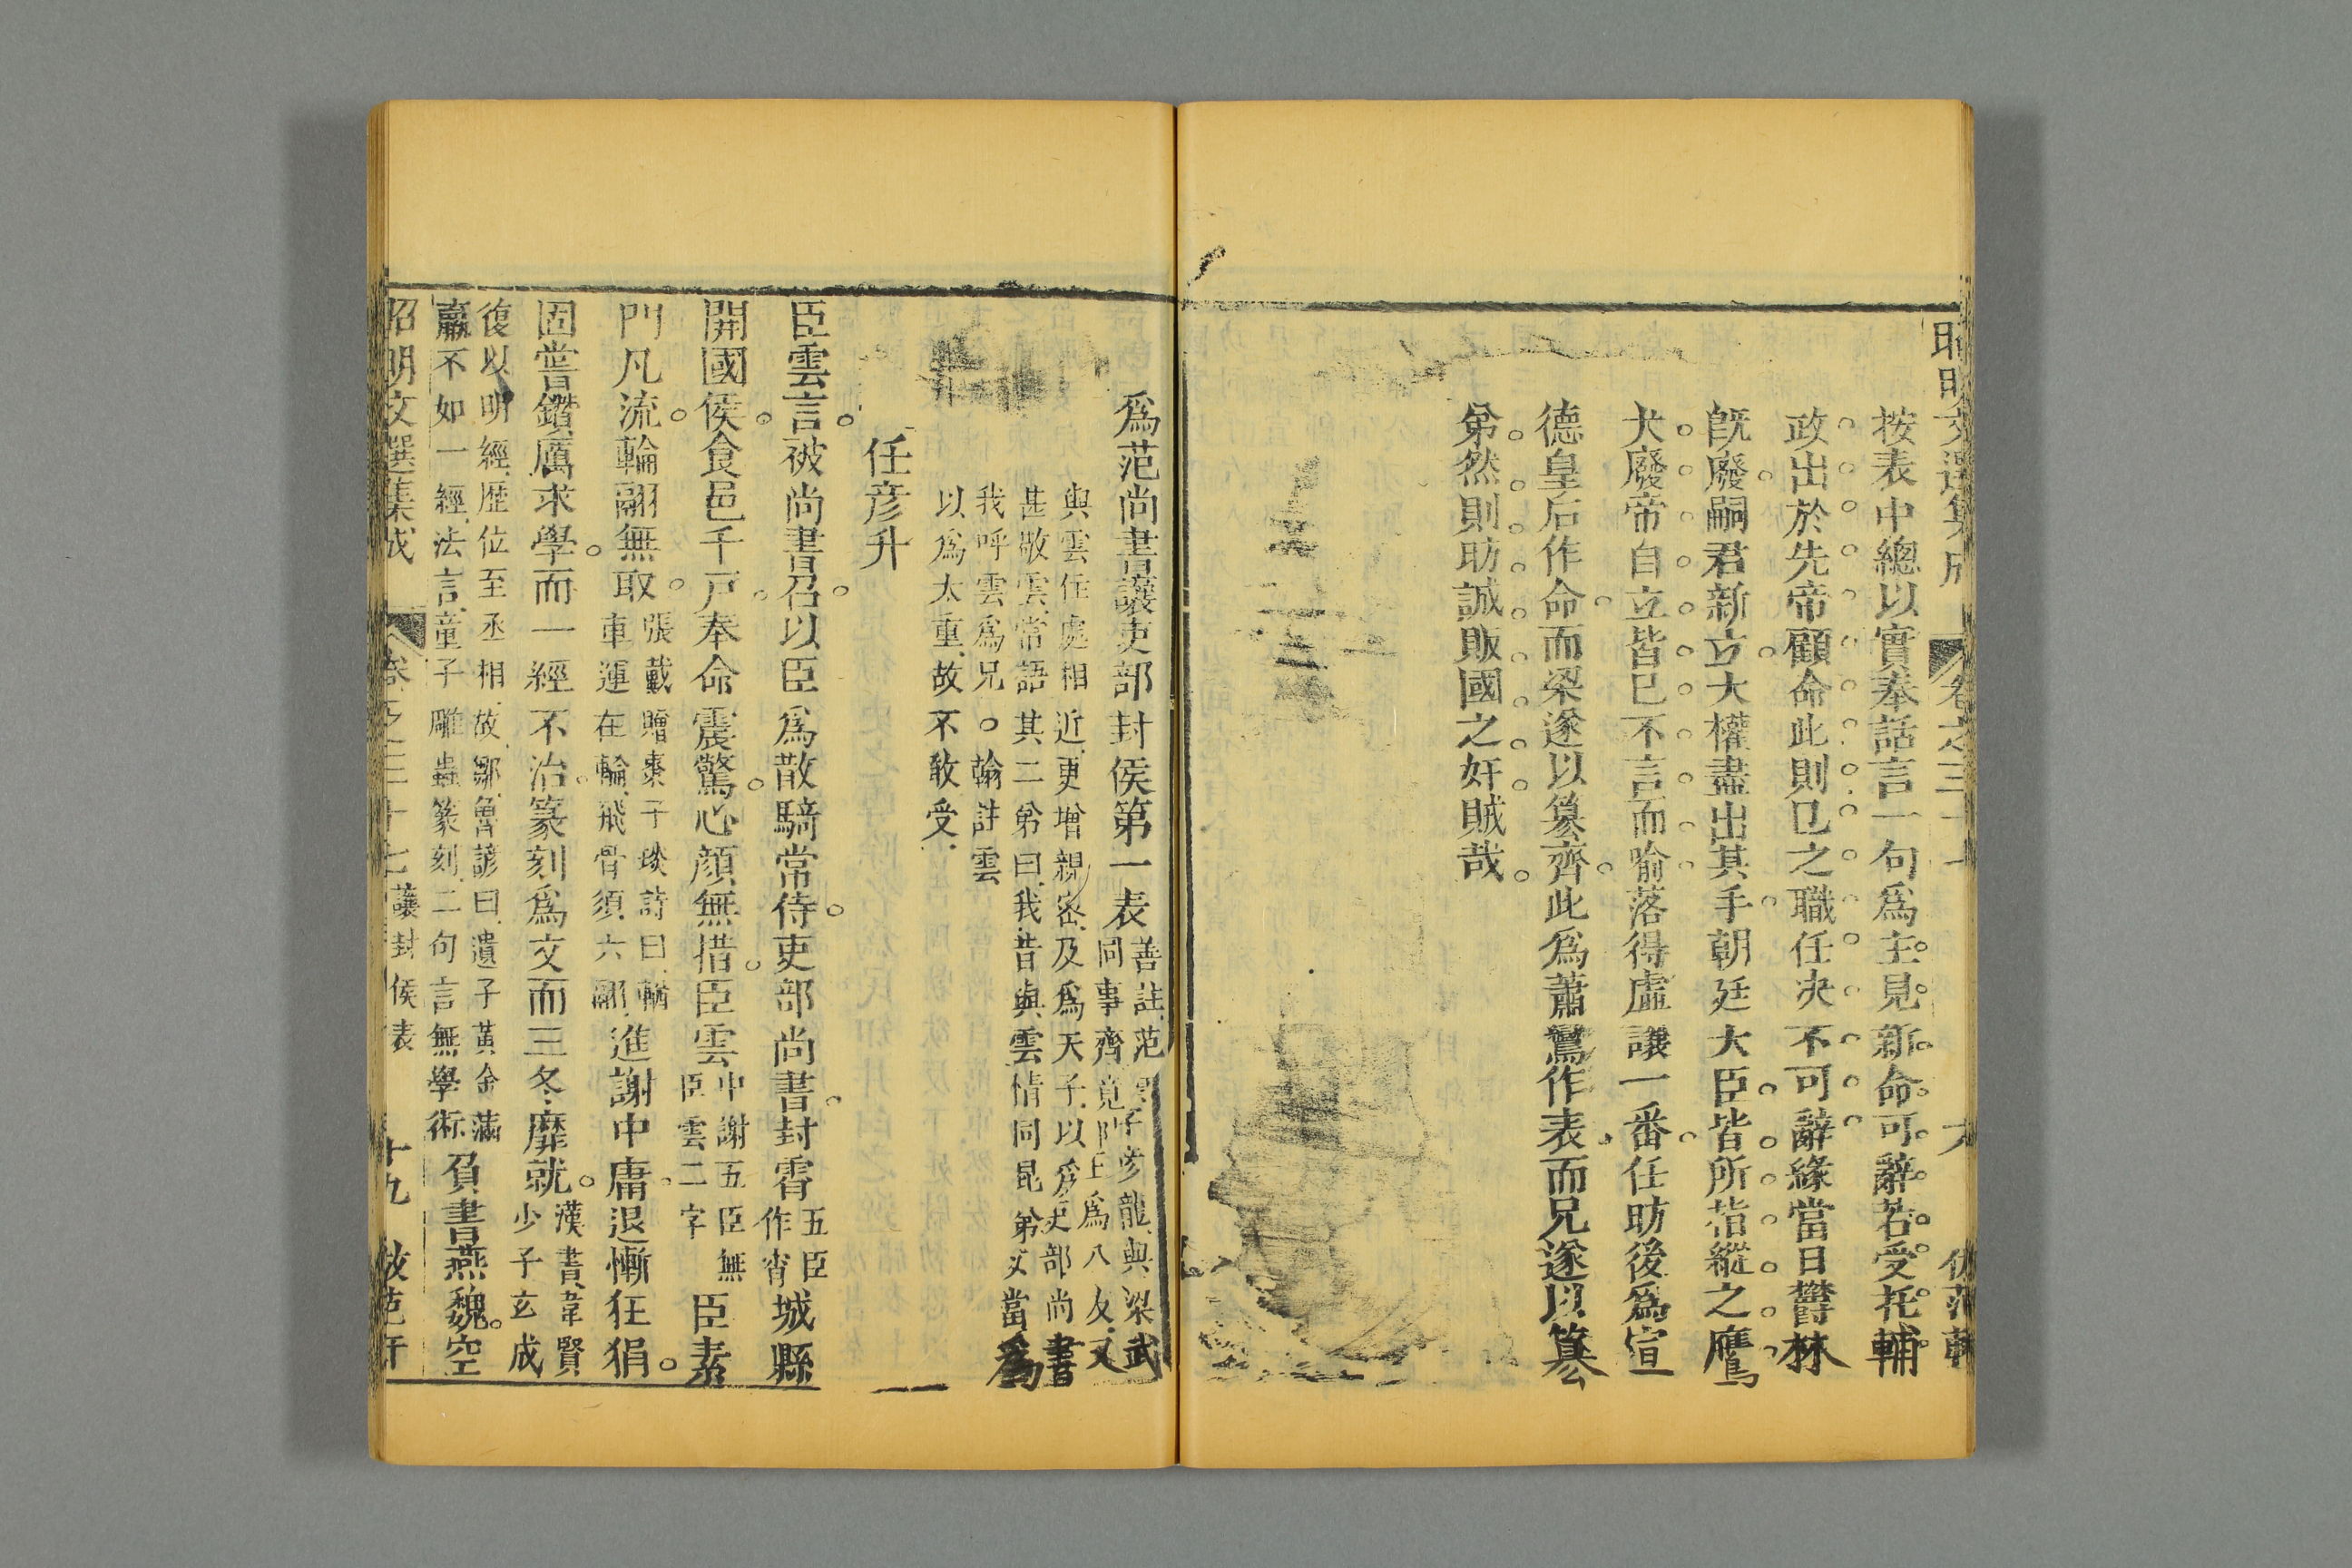 昭明文選集成 卷之三十 倣范軒
按表中總以實奉話言一句爲主見新命可辭若受托輔
政出於先帝顧命此則已之職任决不可辭緣當日欝林
旣廢嗣君新立大權盡出其手朝廷大臣皆所指縱之鷹
犬廢帝自立皆已不言而喻落得虛讓一番任昉後爲宣
德皇后作命而梁遂以篡齊此爲蕭鸞作表而兄遂以篡
弟然則昉誠販國之奸賊哉
爲范尚書讓吏部封侯第一表
善註范雲字彦龍與梁武
同事齊竟陵王爲八友又
與雲住處相近更增親密及爲天子以爲吏部尚書
甚敬雲常語其二弟曰我昔與雲情同昆弟汝當爲
我呼雲爲兄○翰註雲
以爲太重故不敢受
任彦升
臣雲言被尚書召以臣爲散騎常侍吏部尚書封霄五臣作宵城縣
開國侯食邑千戸奉命震驚心顔無措臣雲中謝五臣無臣雲二字臣素
門凡流輪翮無取張載贈棗子琰詩曰輶車運在輪飛骨須六翮進謝中庸退慚狂狷
固嘗鑽厲求學而一經不治篆刻爲文而三冬靡就漢書韋賢少子玄成
復以明經歷位至丞相故鄒魯諺曰遺子黃金滿
籯不如一經法言童子雕蟲篆刻二句言無學術
負書燕魏空
昭明文選集成 卷之三十七 讓封侯表 十九 倣范軒